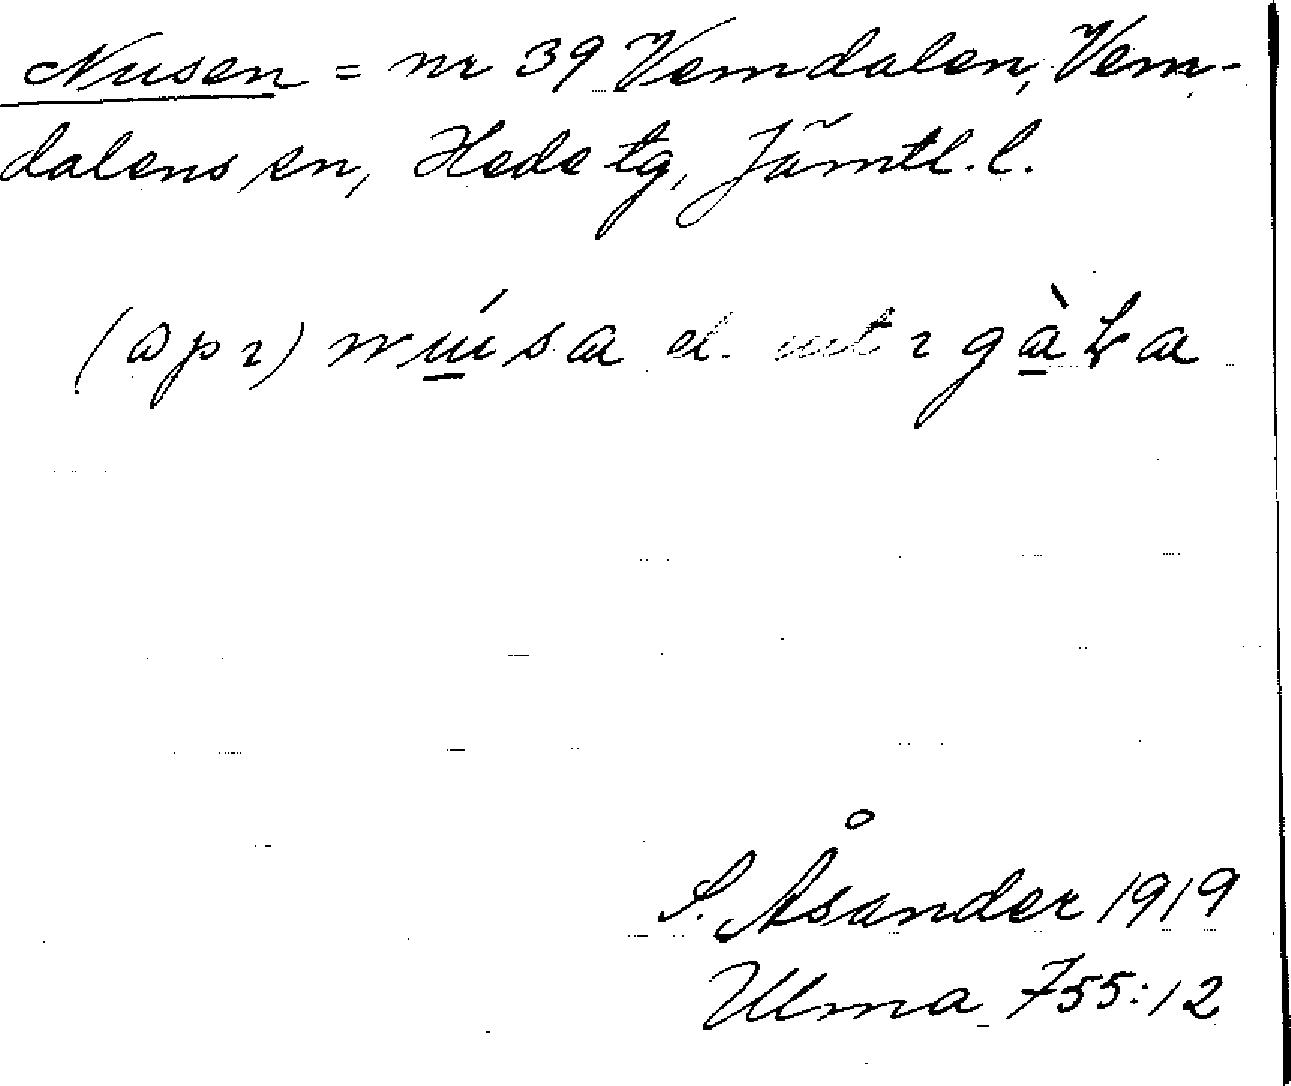 Nusen = nr 39 Vemdalen, Vem-
dalens sn, Hede tg, Jämtl. l.
(spr) núsa el.
S. Åsander 1919
Ulma 755:12